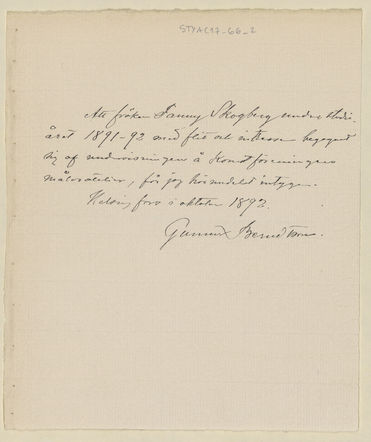 STYAC17-66-2
Att fröken Fanny Skogberg under studie-
året 1891-92 med flit och intresse begagnat
sig af undervisningen å Konstföreningens
målareatelier, får jag härmedelst intyga.
Helsingfors i oktober 1892.
Gunnar Berndtson.